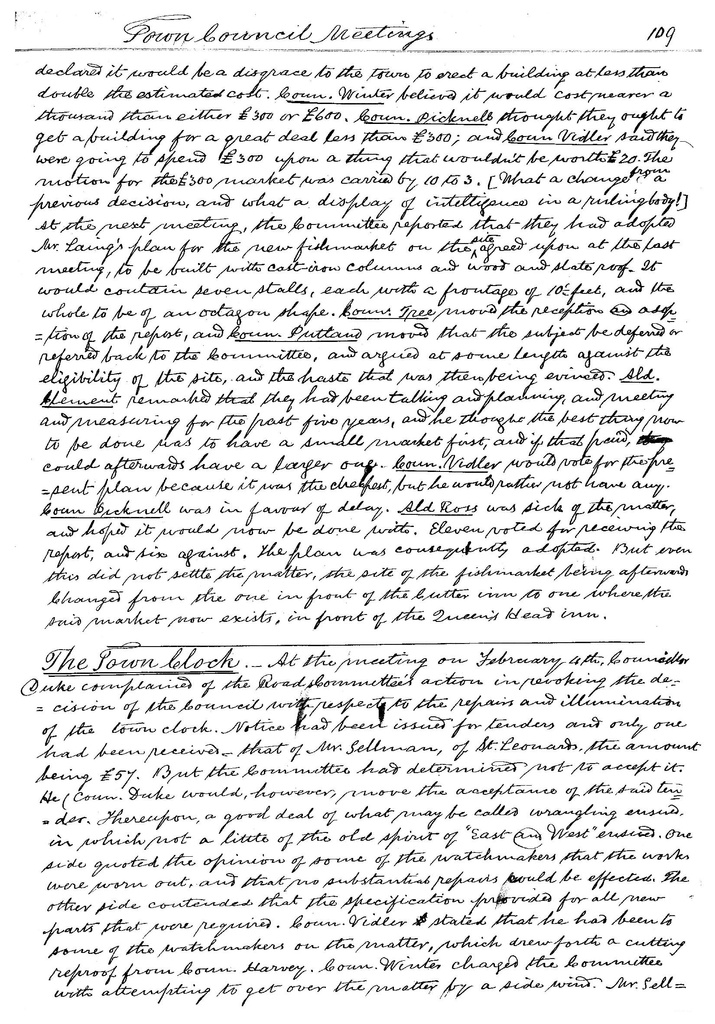 Town Council Meetings 109
declared it would be a disgrace to the town to erect a building at less than
double the estimated cost. Coun. Winter believed it would cost nearer a
thousand than either £300 or £600. Coun. Picknell thought they ought to
get a building for a great deal less than £300; and Coun Vidler said they
were going to spend £300 upon a thing that wouldn't be worth £20. The
motion for the £300 market was carried by 10 to 3. [What a change from a
previous decision, and what a display of intelligence in a ruling body!]
At the next meeting, the Committee reported that they had adopted
Mr. Laing's plan for the new fishmarket on the site agreed upon at the last
meeting, to be built with cast-iron columns and wood and slate roof. It
would contain seven stalls, each with a frontage of 10½ feet, and the
whole to be of an octagon shape. Coun. Tree moved the reception and adop-
=tion of the report, and Coun. Putland moved that the subject be deferred or
referred back to the Committee, and argued at some length against the
eligibility of the site, and the haste that was then being evinced. Ald.
Clement remarked that they had been talking and planning, and meeting
and measuring for the past five years, and he thought the best thing now
to be done was to have a small market first, and if that paid,
could afterwards have a larger one. Coun. Vidler would vote for the pre=
=sent plan because it was the cheapest, but he would rather not have any.
Coun Picknell was in favour of delay. Ald Ross was sick of the matter,
and hoped it would now be done with. Eleven voted for receiving the
report, and six against. The plan was consequently adopted. But even
this did not settle the matter, the site of the fishmarket being afterwards
changed from the one in front of the Cutter inn to one where the
said market now exists, in front of the Queen's Head inn.
The Town Clock. — At the meeting on February 4th, Councillor
Duke complained of the Road Committee's action in revoking the de=
=cision of the Council with respect to the repairs and illumination
of the town clock. Notice had been issued for tenders and only one
had been received — that of Mr. Sellman, of St. Leonards, the amount
being £57. But the Committee had determined not to accept it.
He (Coun. Duke would, however, move the acceptance of the said ten=
=der. Thereupon, a good deal of what may be called wrangling ensued.
in which not a little of the old spirit of "East and West" ensued. One
side quoted the opinion of some of the watchmakers that the works
were worn out, and that no substantial repairs could be effected. The
other side contended that the specification provided for all new
parts that were required. Coun. Vidler stated that he had been to
some of the watchmakers on the matter, which drew forth a cutting
reproof from Coun. Harvey. Coun. Winter charged the Committee
with attempting to get over the matter by a side wind. Mr. Sell=